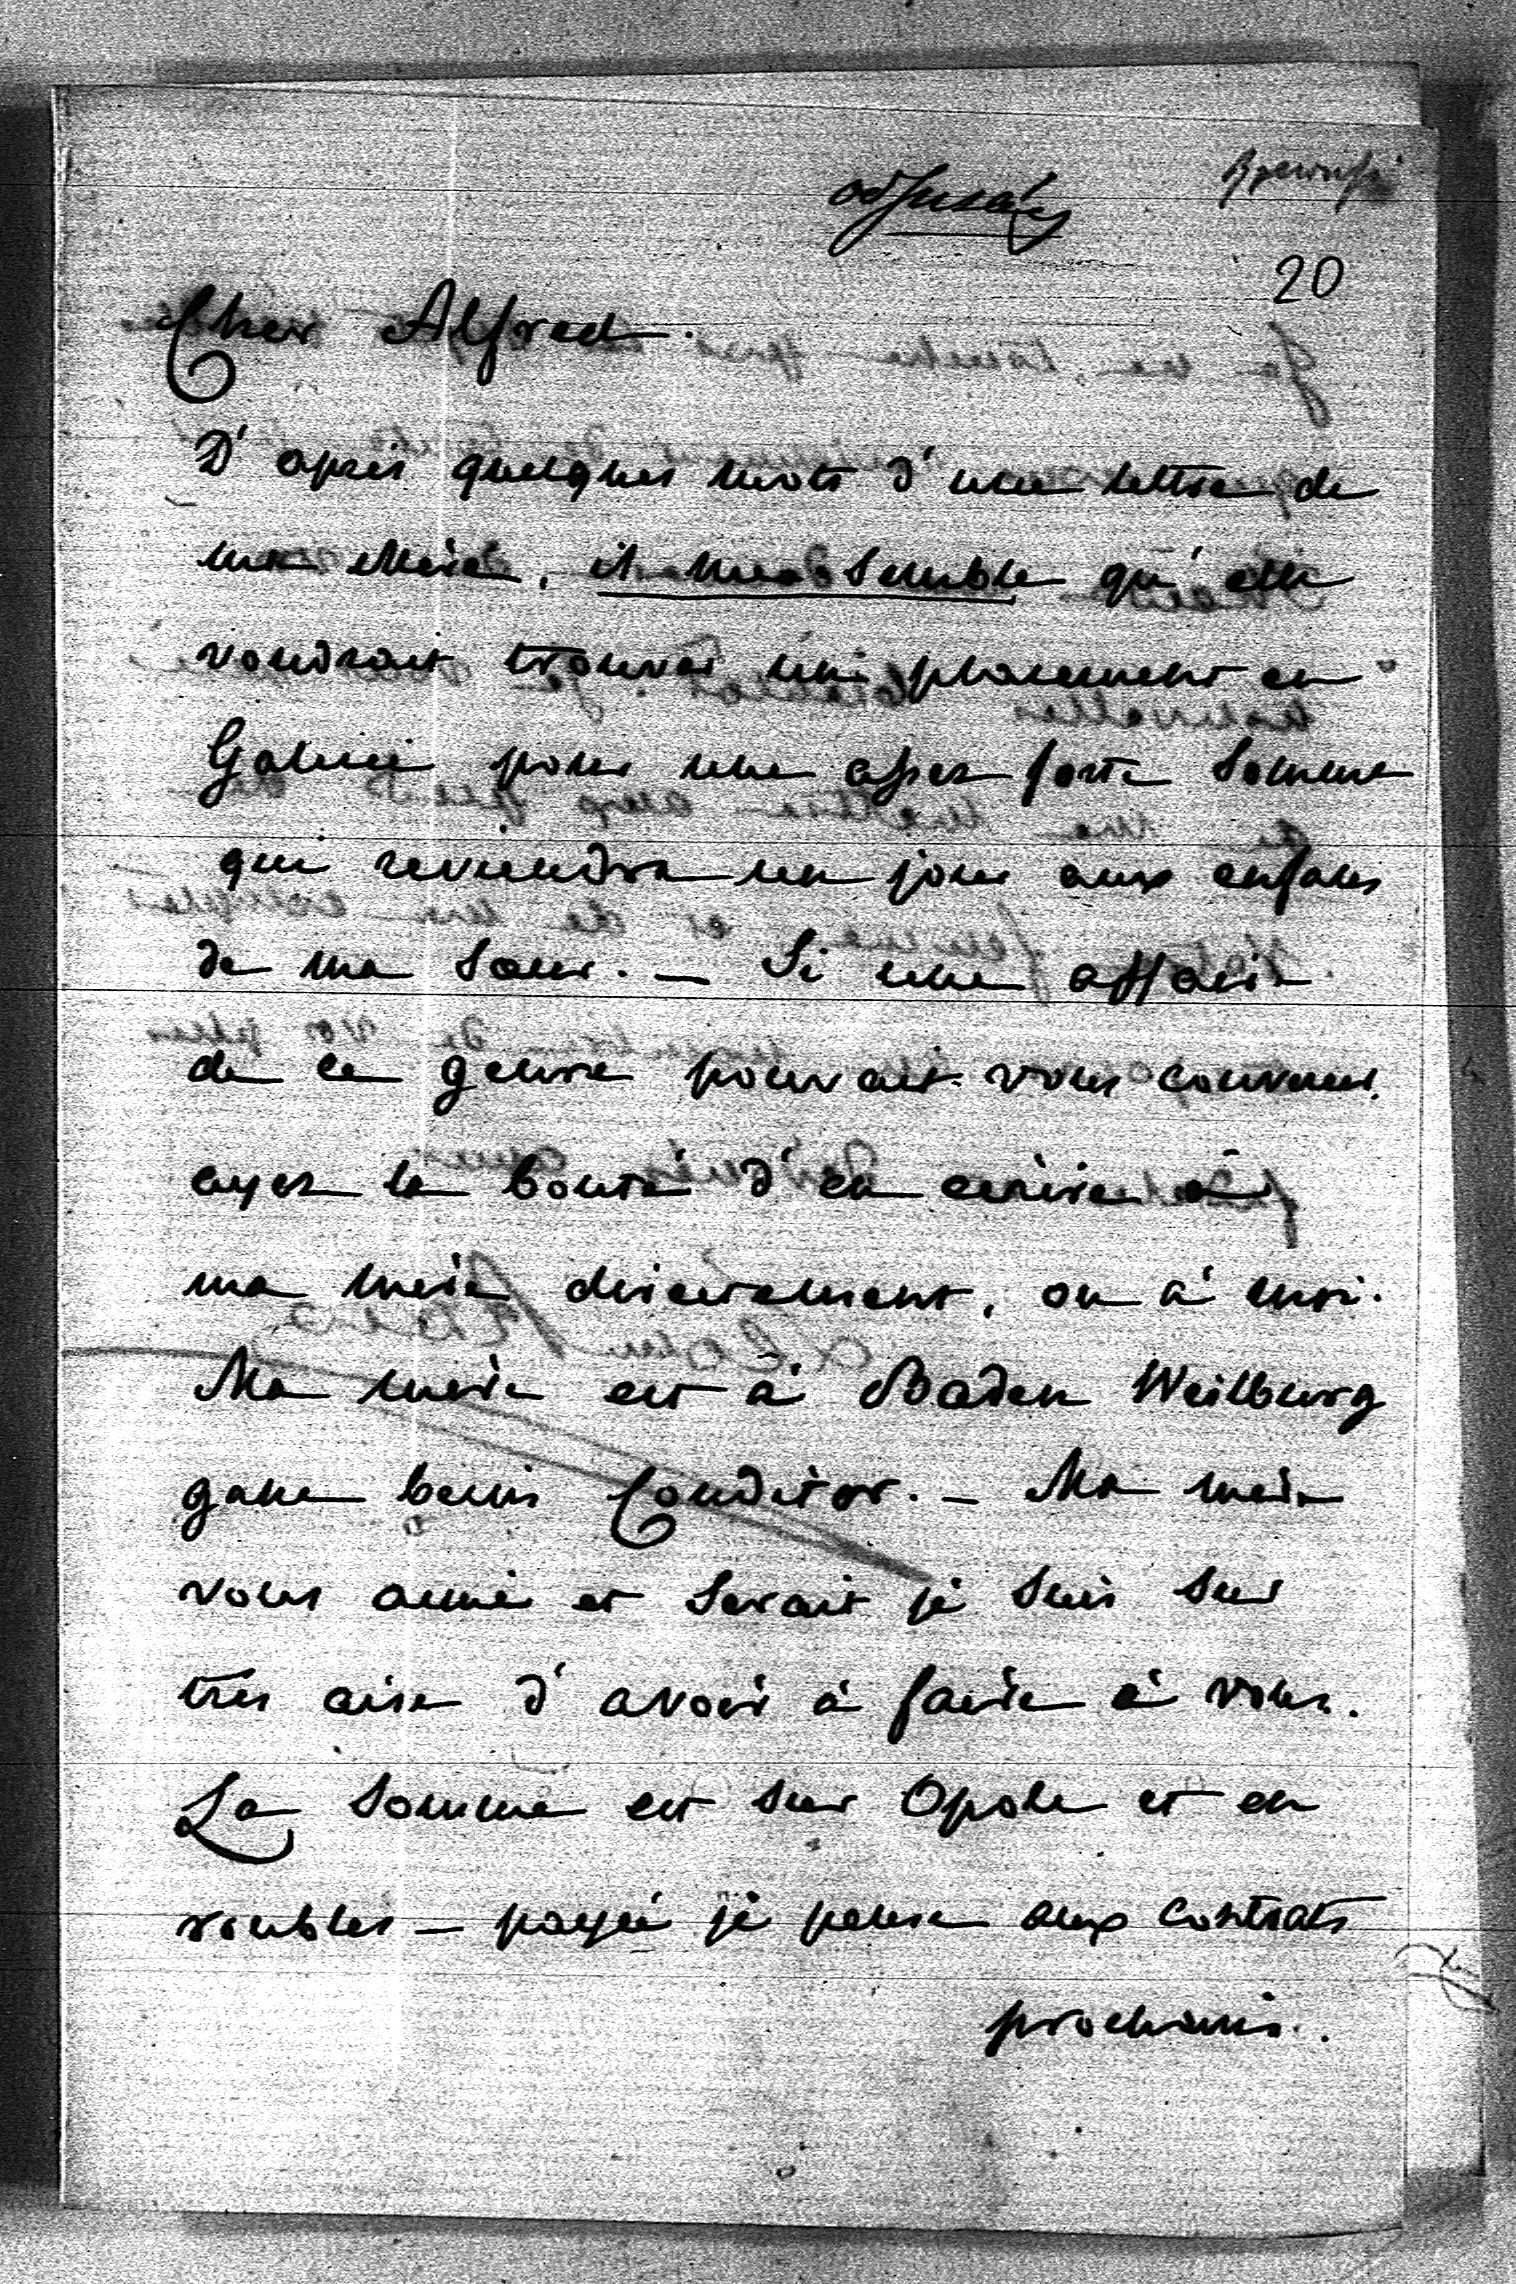 20
Cher Alfred.
D'après quelques mots d'une lettre de
ma Mère, il me semble qu'elle
voudrait trouver un placement en
Galicie pour une assez forte somme
qui reviendra un jour aux enfans
de ma Sœur. — Si une affaire
de ce genre pouvait vous convenir,
ayez la bonté d'en écrire à
ma mère directement, ou à moi.
Ma mère est à Baden Weilburg
gasse beim Conditor. — Ma mère
vous aime et serait je suis sur
très aise d'avoir à faire à vous.
La somme est sur Opole et en
roubles — payée je pense aux contrats
prochains.